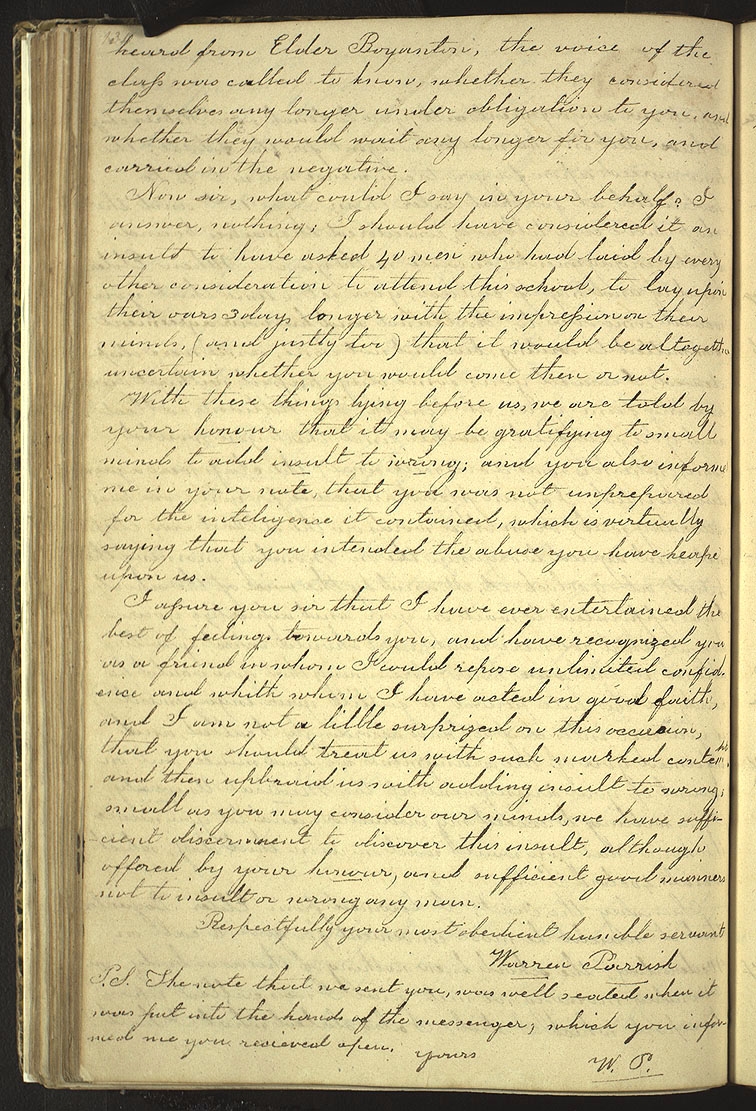 134
heard from Elder Boyanton, the voice of the
class was called to know, whether they considered
themselves any longer under obligation to you, and
whether they would wait any longer for you, and
carried in the negative.
Now sir, what could I say in your behalf? I
answer, nothing; I should have considered it an
insult to have asked 40 men who had laid by every
other consideration to attend this school, to lay upon
their oars 3 days longer with the impression on their
minds, (and justly too) that it would be altogether
uncertain whether you would come then or not.
With these things lying before us, we are told by
your honour that it may be gratifying to small
minds to add insult to wrong; and you also inform
me in your note, that you was not unprepared
for the inteligence it contained, which is virtually
saying that you intended the abuse you have heaped
upon us.
I assure you sir that I have ever entertained the
best of feelings towards you, and have recognized you
as a friend in whom I could repose unlimited confid-
ence and whith whom I have acted in good faith,
and I am not a little surprized on this occasion,
that you should treat us with such marked contempt,
and then upbraid us with adding insult to wrong;
small as you may consider our minds, we have suffi-
cient discernment to discover this insult, although
offered by your honour, and sufficient good manners
not to insult or wrong any man.
Respectfully your most obedient humble servant
Warren Parrish
P.S. The note that we sent you, was well sealed when it
was put into the hands of the messenger, which you infor-
med me you recieved open. yours
W. P.